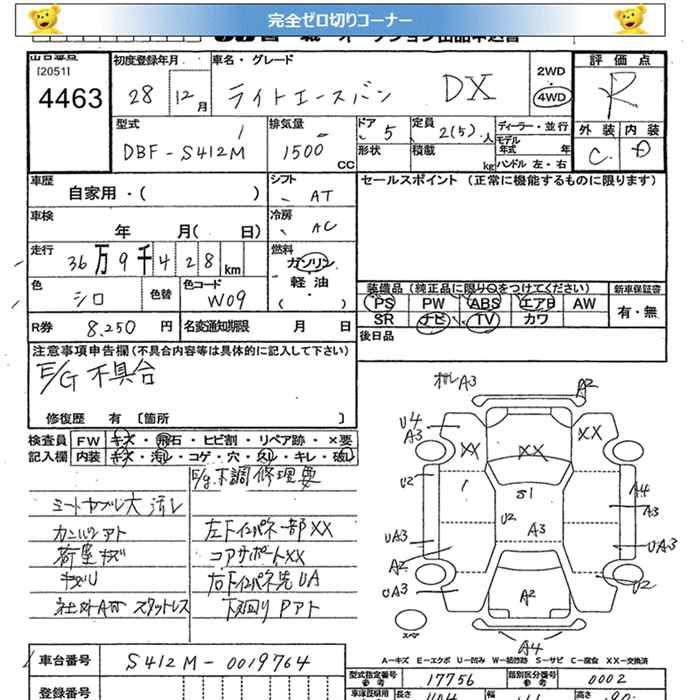 完全ゼロ切りコーナー
出品番号 [2051] 4463
初度登録年月 28 12月
車名・グレード ライトエースバン DX
2WD 4WD
評価点 R
外装 C 内装 D
型式 DBF-S412M
排気量 1500 CC
ドア 5 定員 2(5)人
ディーラー・並行
形状 積載 kg
モデル年式 年
ハンドル 左・右
車歴 自家用・( )
シフト AT
セールスポイント (正常に機能するものに限ります)
車検 年 月( 日)
冷房 AC
走行 36万9千428km
燃料 ガソリン 軽油 ( )
色 シロ 色替
色コード W09
装備品(純正品に限り○をつけてください)
新車保証書 有・無
PS PW ABS エアB AW
SR ナビ TV カワ
R券 8,250円
名変通知期限 月 日
後日品
注意事項申告欄(不具合内容等は具体的に記入して下さい)
E/G不具合
修復歴 有 [箇所 ]
検査員記入欄
FW キズ・飛石・ヒビ割・リペア跡・×要
内装 キズ・汚れ・コゲ・穴・スレ・キレ・破れ
E/g不調修理要
シートヤブレ大 汚レ
左下インパネ一部XX
荷室キズ
コアサポートXX
社外AW スタットレス
下廻りPアト
A3 A2
U4 A3
XX XX XX
U2 S1 U2 A3 A4 A3
UA3 UA3
A2 A2 U2
UA3
スペア A4
A-キズ E-エクボ U-凹み W-補修跡 S-サビ C-腐食 XX-交換済
車台番号 S412M-0019764
型式指定番号 参考 17756
類別区分番号 参考 0002
登録番号
長さ 幅 高さ